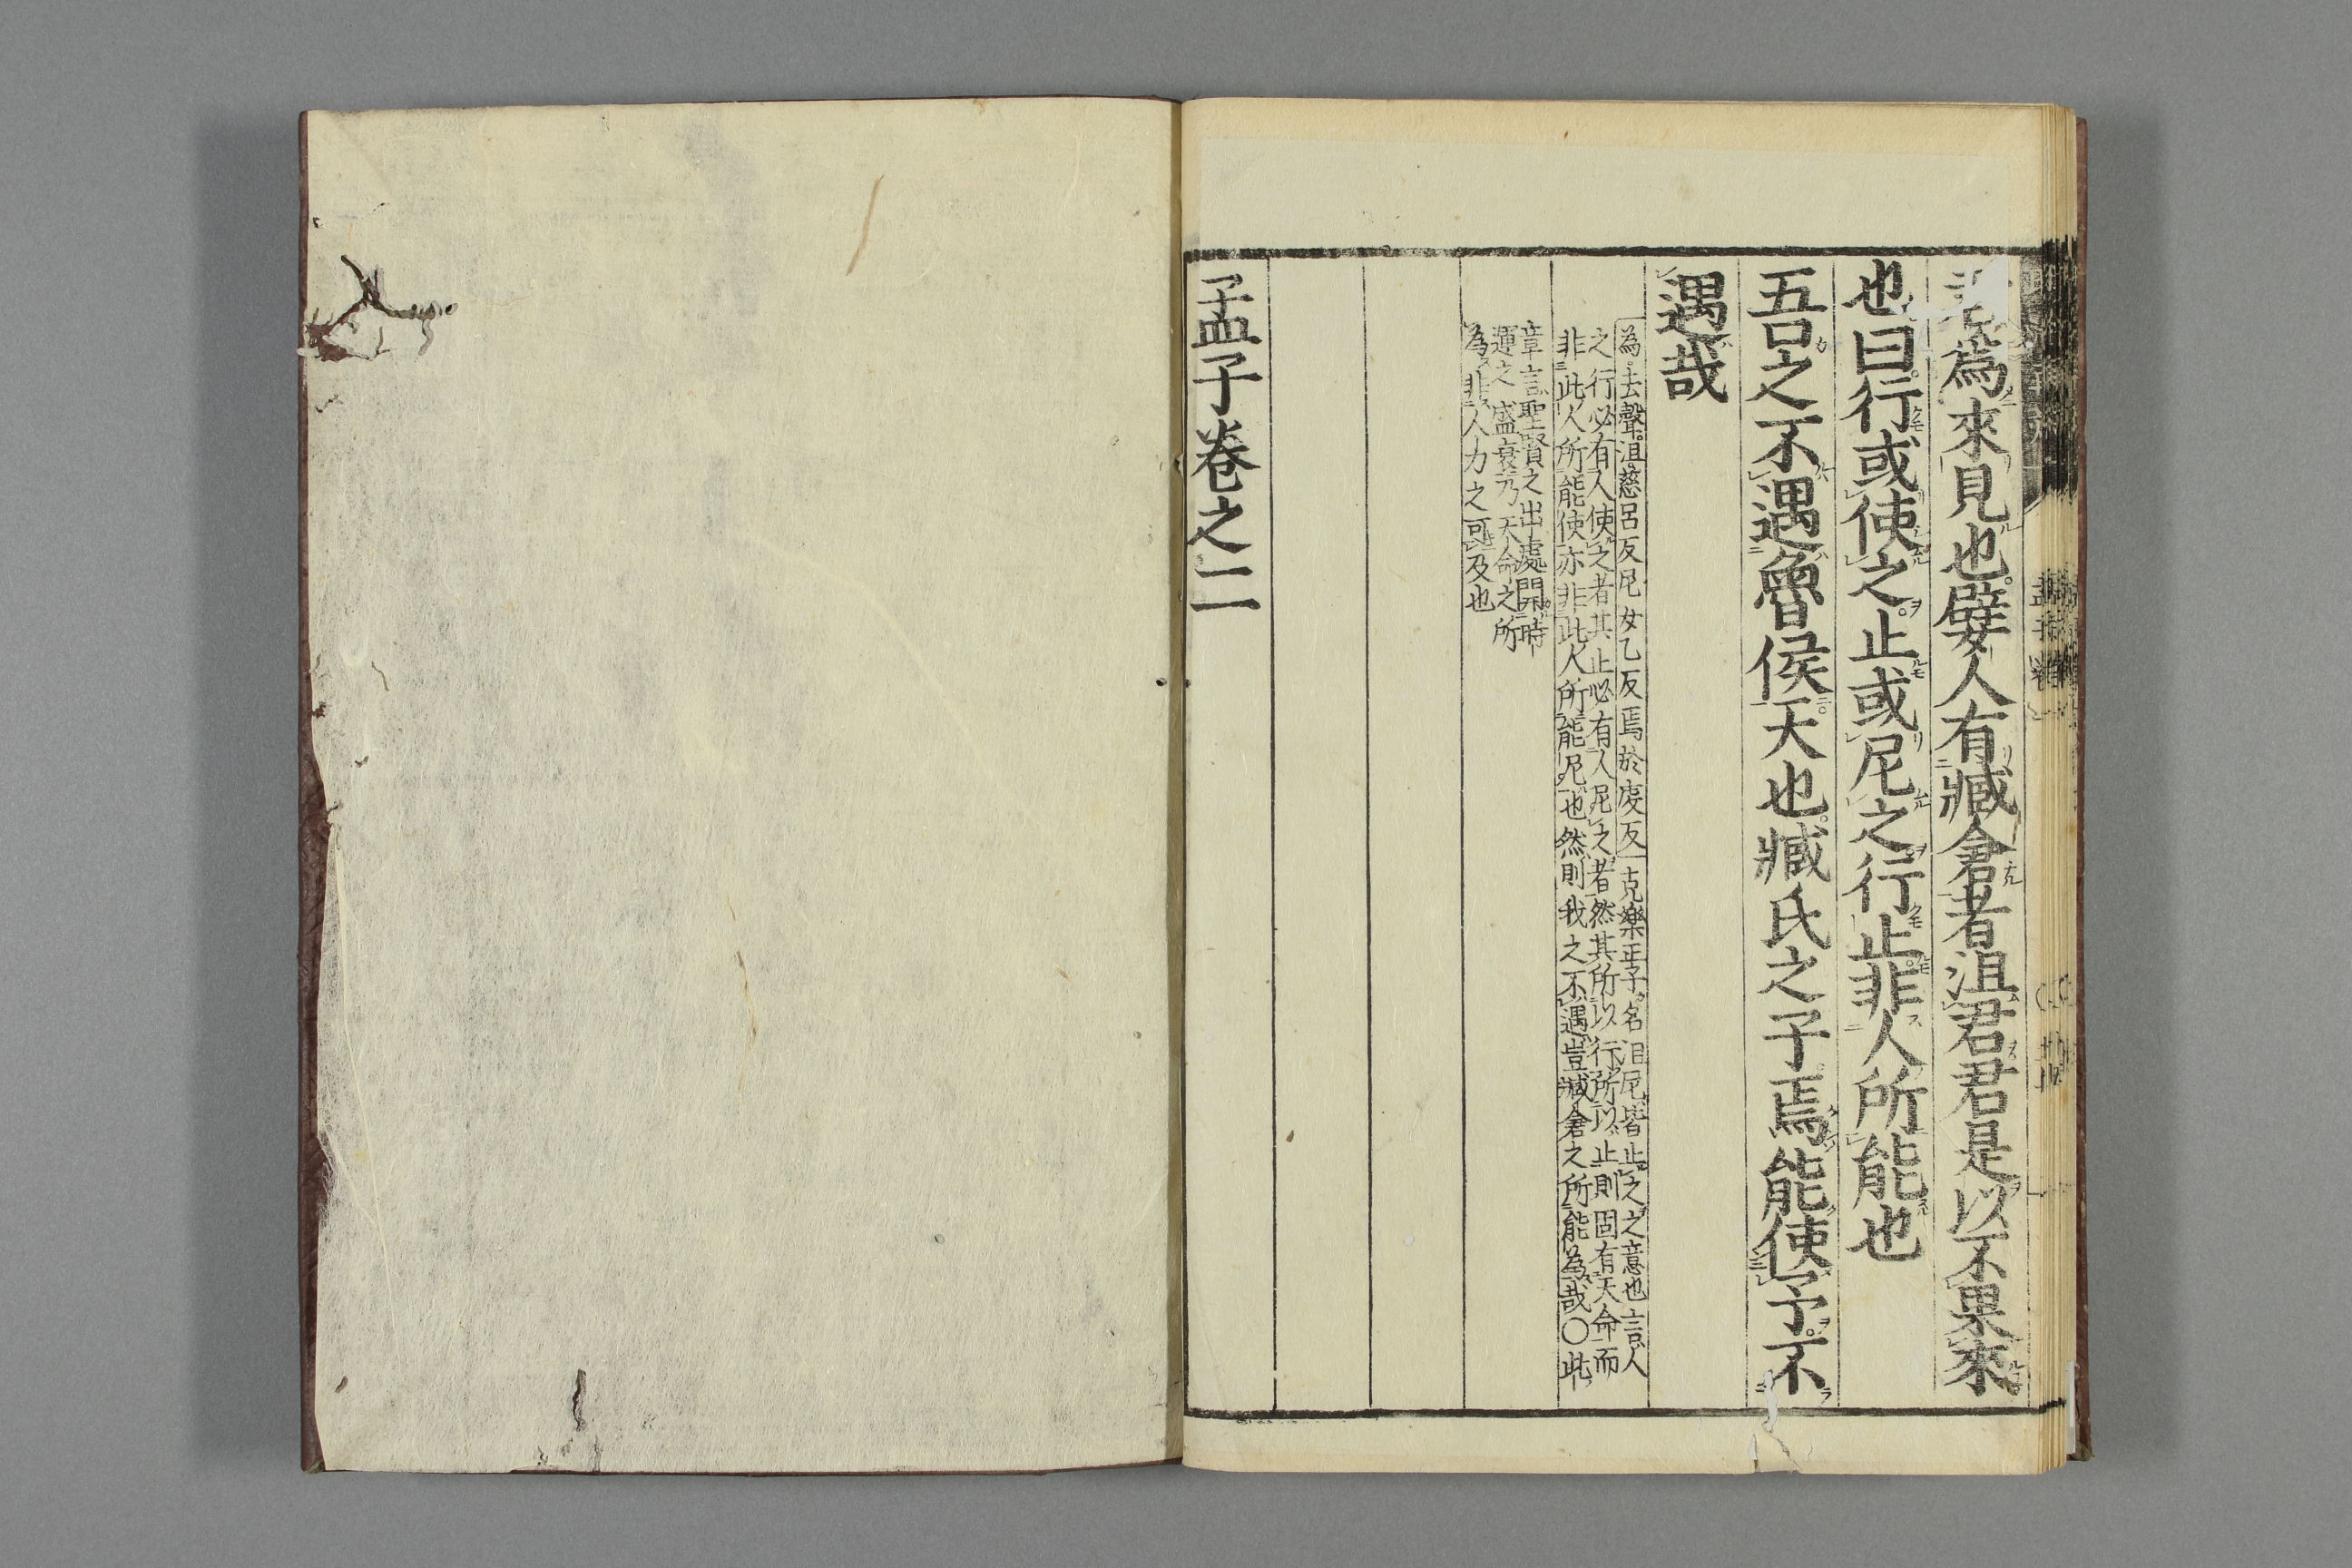 爲來見也嬖人有臧倉者沮君君是以不果來
也曰行或使之止或尼之行止非人所能也
吾之不遇魯侯天也臧氏之子焉能使予不
遇哉
為去聲沮慈呂反尼女乙反焉於虔反克樂正子名沮尼皆止之之意也言人
之行必有人使之者其止必有人尼之者然其所以行所以止則固有天命而
非此人所能使亦非此人所能尼也然則我之不遇豈臧倉之所能為哉〇此
章言聖賢之出處關時
運之盛衰乃天命之所
為非人力之可及也
孟子卷之二